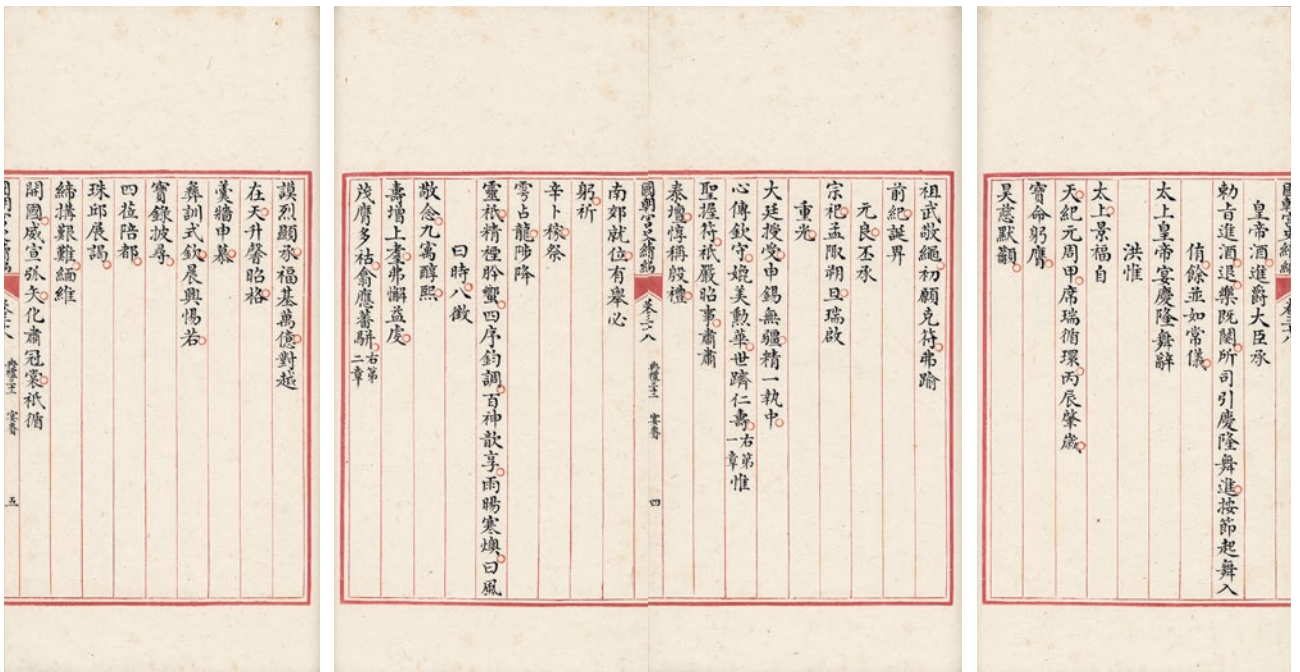 皇帝酒進爵大臣承
勅旨進酒退樂既闋所司引慶隆舞進按節起舞入
侑餘並如常儀
太上皇帝宴慶隆舞辭
洪惟
太上景福自
天紀元周甲席瑞循環丙辰肇歲
寶命躬膺
昊慈默籲
祖武敬繩初願克符弗踰
前紀誕畀
元良丕承
宗祀孟陬朔旦瑞啟
重光
大廷授受申錫無疆精一執中
心傳欽守媲美勲華世躋仁壽右第一章惟
聖握符祇嚴昭事肅肅
泰壇惇稱殷禮
國朝宮史續編 卷三十八 典禮三十二 宴賚 四
南郊就位有舉必
躬祈
辛卜稼祭
雩占龍陟降
靈祇精禋肹蠁四序鈞調百神歆享雨暘寒燠曰風
曰時八徵
敬念九寓醇熙
壽增上孝弗懈益虔
茂膺多祜翕應蕃駢右第二章
謨烈顯承福基萬億對越
在天升馨昭格
羹牆申慕
彝訓式欽晨興惕若
寶錄披尋
四莅陪都
珠邱展謁
締搆艱難緬維
開國威宣張矢化肅冠裳祇循
五